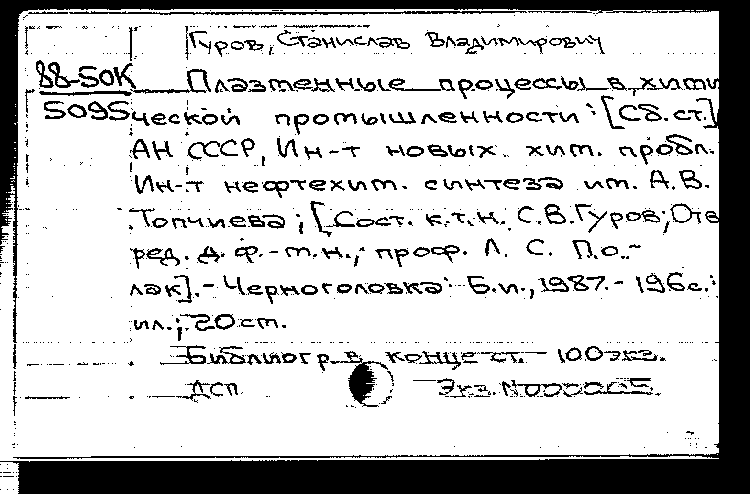 Гуров, Станислав Владимирович
88-50К Плазменные процессы в хими
5095 ческой промышленности: [Сб. ст.]
АН СССР, Ин-т новых хим. пробл.
Ин-т нефтехим. синтеза им. А.В.
Топчиева; [Сост. к.т.н. С.В.Гуров; Отв
ред. д. ф.-м.н., проф. Л. С. По-
лак]. - Черноголовка: Б.и., 1987. - 196с.:
ил.; 20 см.
Библиогр. в конце ст. 100 экз.
ДСП Экз. N000065